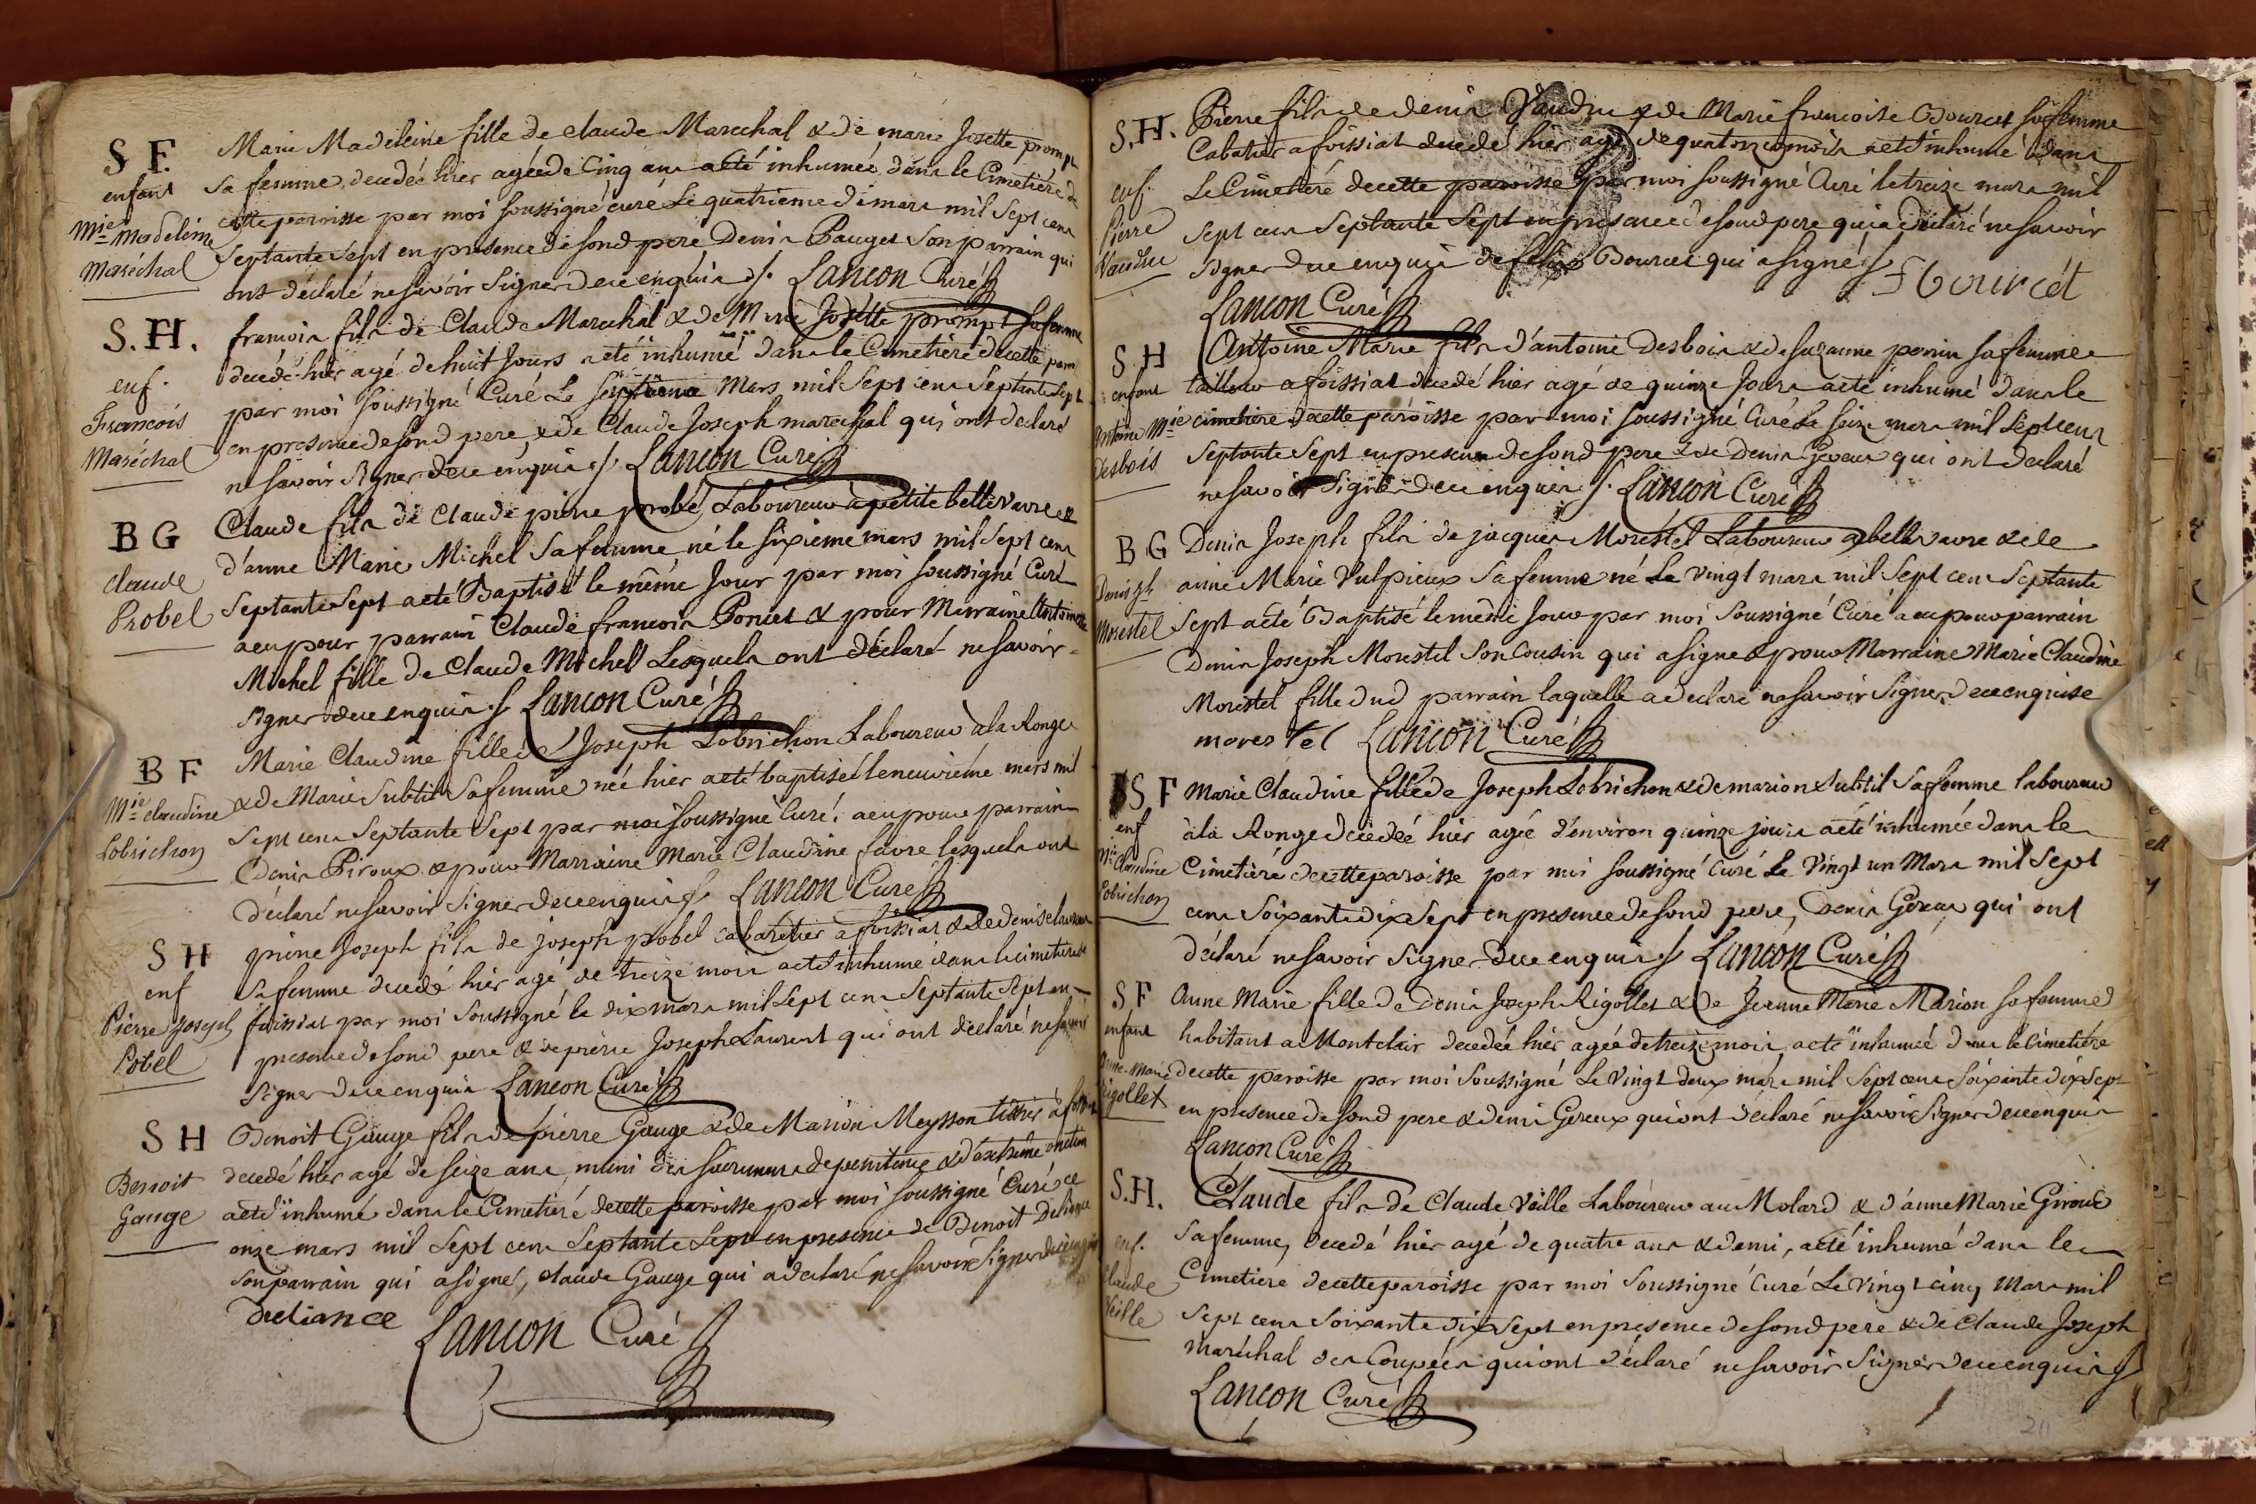 S F.
enfant
Mie Madeleine
Maréchal
Marie Madeleine fille de claude Marechal & de marie Josette prompt
sa femme, decedée hier agée de Cinq ans a eté inhumée dans le Cimetiere de
cette paroisse par moi soussigné curé Le quatrieme de mars mil sept cens
septante sept en presence de sond pere Denis Pauget son parrain qui
ont déclaré ne savoir signer de ce enquis ./. Lancon Curé
S. H.
enf.
Francois
Maréchal
francois fils de Claude Marechal & de Marie Josette prompt sa femme
decedé hier agé de huit Jours a eté inhumé dans le Cimetiere de cette paroi
par moi soussigné Curé Le septieme Mars mil sept cens septante sept
en presence de sond pere, & de Claude Joseph marechal qui ont declaré
ne savoir signer de ce enquis ./. Lancon Curé
B G
claude
Probel
Claude fils de Claude pierre probel Laboureur à petite bellevavre &
d'anne Marie Michel sa femme né le sixieme mars mil sept cens
septante sept a eté Baptisé le même Jour par moi soussigné Curé
a eu pour parrain Claude francois Poncet & pour Marraine Antoinette
Michel fille de Claude Michel Lesquels ont déclaré ne savoir
signer de ce enquis ./. Lancon Curé
B F
Mie claudine
Lobrichon
Marie Claudine fille de Joseph Lobrichon Laboureur à la Ronge
& de Marie Subtil sa femme née hier a eté baptisée le neuvième mars mil
sept cens septante sept par moi soussigné Curé, a eu pour parrain
Denis Piroux & pour Marraine Marie Claudine favre lesquels ont
déclaré ne savoir signer de ce enquis ./. Lancon Curé
S H
enf
Pierre Joseph
Pobel
pierre Joseph fils de Joseph pobel cabaretier a foissiat & de denise laurent
sa femme decedé hier agé de treize mois a eté inhumé dans le cimetiere de
foissiat par moi soussigné le dix mars mil sept cens septante sept en
presence de sond pere & de pierre Joseph Laurent qui ont déclaré ne savoir
signer de ce enquis Lancon Curé
S H
Benoit
Gauge
Benoit Gauge fils de pierre Gauge & de Marion Meysson tissier à foissiat
decedé hier agé de seize ans, muni des sacremens de penitence & d'extreme onction
a eté inhumé dans le Cimetiere de cette paroisse par moi soussigné Curé ce
onze mars mil sept cens septante sept en presence de Benoit Deliance
son parrain qui a signé, claude Gauge qui a declaré ne savoir signer de ce enquis
deliance
Lancon Curé
S. H.
enf.
Pierre
Vaudru
Pierre fils de denis Vaudru & de Marie francoise Bourcet sa femme
Cabatier a foissiat decedé hier agé de quatorze mois a eté inhumé dans
Le Cimetiere de cette paroisse par moi soussigné Curé le treize mars mil
sept cens septante sept en presence de sond pere qui a déclaré ne savoir
signer de ce enquis de felix Bourcet qui a signé ./.
F bourcet
Lancon Curé
S H
enfant
Antoine Mie
Desbois
Antoine Marie fils d'antoine Desbois & de suzanne perrin sa femme
tailleur a foissiat decedé hier agé de quinze Jours a eté inhumé dans le
cimetiere de cette paroisse par moi soussigné Curé Le seize mars mil sept cens
septante sept en presence de sond pere & de Denis Gereux qui ont declaré
ne savoir signer de ce enquis ./. Lancon Curé
B G
Denis Jh
Morestel
Denis Joseph fils de jacques Morestel Laboureur a bellevavre & de
anne Marie Vulpieux sa femme né Le Vingt mars mil sept cens septante
sept a eté Baptisé le même Jour par moi soussigné Curé a eu pour parrain
Denis Joseph Morestel son Cousin qui a signé & pour Marraine Marie Claudine
Morestel fille dud parrain laquelle a déclaré ne savoir signer de ce enquise
morestel Lancon Curé
S F
enf
Mie Claudine
Lobrichon
Marie Claudine fille de Joseph Lobrichon & de marion Subtil sa femme laboureur
à la Ronge decedeé hier agée d'environ quinze jours a eté inhumée dans le
Cimetiere de cette paroisse par moi soussigné Curé Le Vingt un Mars mil sept
cens soixante dix sept en presence de sond pere, Denis Gereux qui ont
déclaré ne savoir signer de ce enquis ./. Lancon Curé
S F
enfant
Anne-Marie
Rigollet
Anne Marie fille de Denis Joseph Rigollet & de Jeanne Marie Marion sa femme
habitant a Montclair decedeé hier agée de treize mois, a eté inhumée dans le Cimetiére
de cette paroisse par moi soussigné Le Vingt deux mars mil sept cens soixante dix sept
en presence de sond pere & denis Gereux qui ont déclaré ne savoir signer de ce enquis
Lancon Curé
S. H.
enf.
Claude
Veille
Claude fils de Claude Veille Laboureur au Molard & d'anne Marie Giroud
sa femme, decedé hier agé de quatre ans & demi, a eté inhumé dans le
Cimetiere de cette paroisse par moi soussigné Curé Le Vingt cinq Mars mil
sept cens soixante dix sept en presence de sond pere & de Claude Joseph
Maréchal des Coupées qui ont déclaré ne savoir signer de ce enquis ./.
Lancon Curé